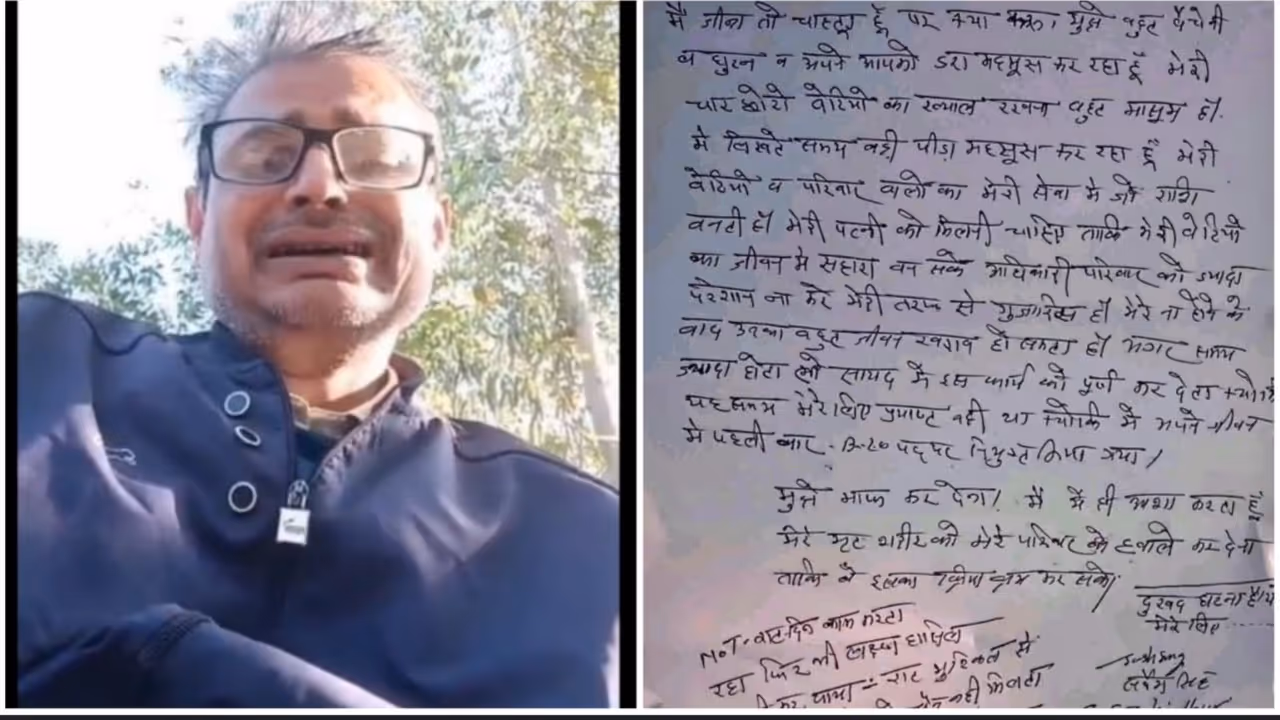 मै जीना तो चाहता हूँ पर क्या करू। मुझे बहुत बेचेनी
व घुटन व अपने आपको डरा महसूस कर रहा हूँ मेरी
चार छोटी बेटियो का ख्याल रखना बहुत मासूम हैं।
मे लिखते समय बड़ी पीड़ा महसूस कर रहा हूँ मेरी
बेटियो व परिवार वालो का मेरी सेवा मे जो राशि
बनती हों मेरी पत्नी को मिलनी चाहिए ताकि मेरी बेटियो
का जीवन मे सहारा बन सके अधिकारी परिवार को ज्यादा
परेशान ना करे मेरी तरफ से गुजारिस हैं मेरे ना होने के
बाद उनका बहुत जीवन खराब हो सकता हैं अगर समय
ज्यादा होता तो सायद मै इस कार्य को पूर्ण कर देता क्योकि
यह समय मेरे लिए प्रयाप्ट नही था क्योकि मे अपने जीवन
मे पहली बार पद पर नियुक्त किया गया।
मुझे माफ कर देना। मै ही आशा करता हूँ
मेरे मृत शरीर को मेरे परिवार के हवाले कर देना
ताकि वे इसका क्रिया कर सके।
दुखद घटना है
मेरे लिए
रात-दिन काम करता
रहा फिर भी लक्ष्य हासिल
कर पाया रात मुश्किल से
नही मिलता
सिंह